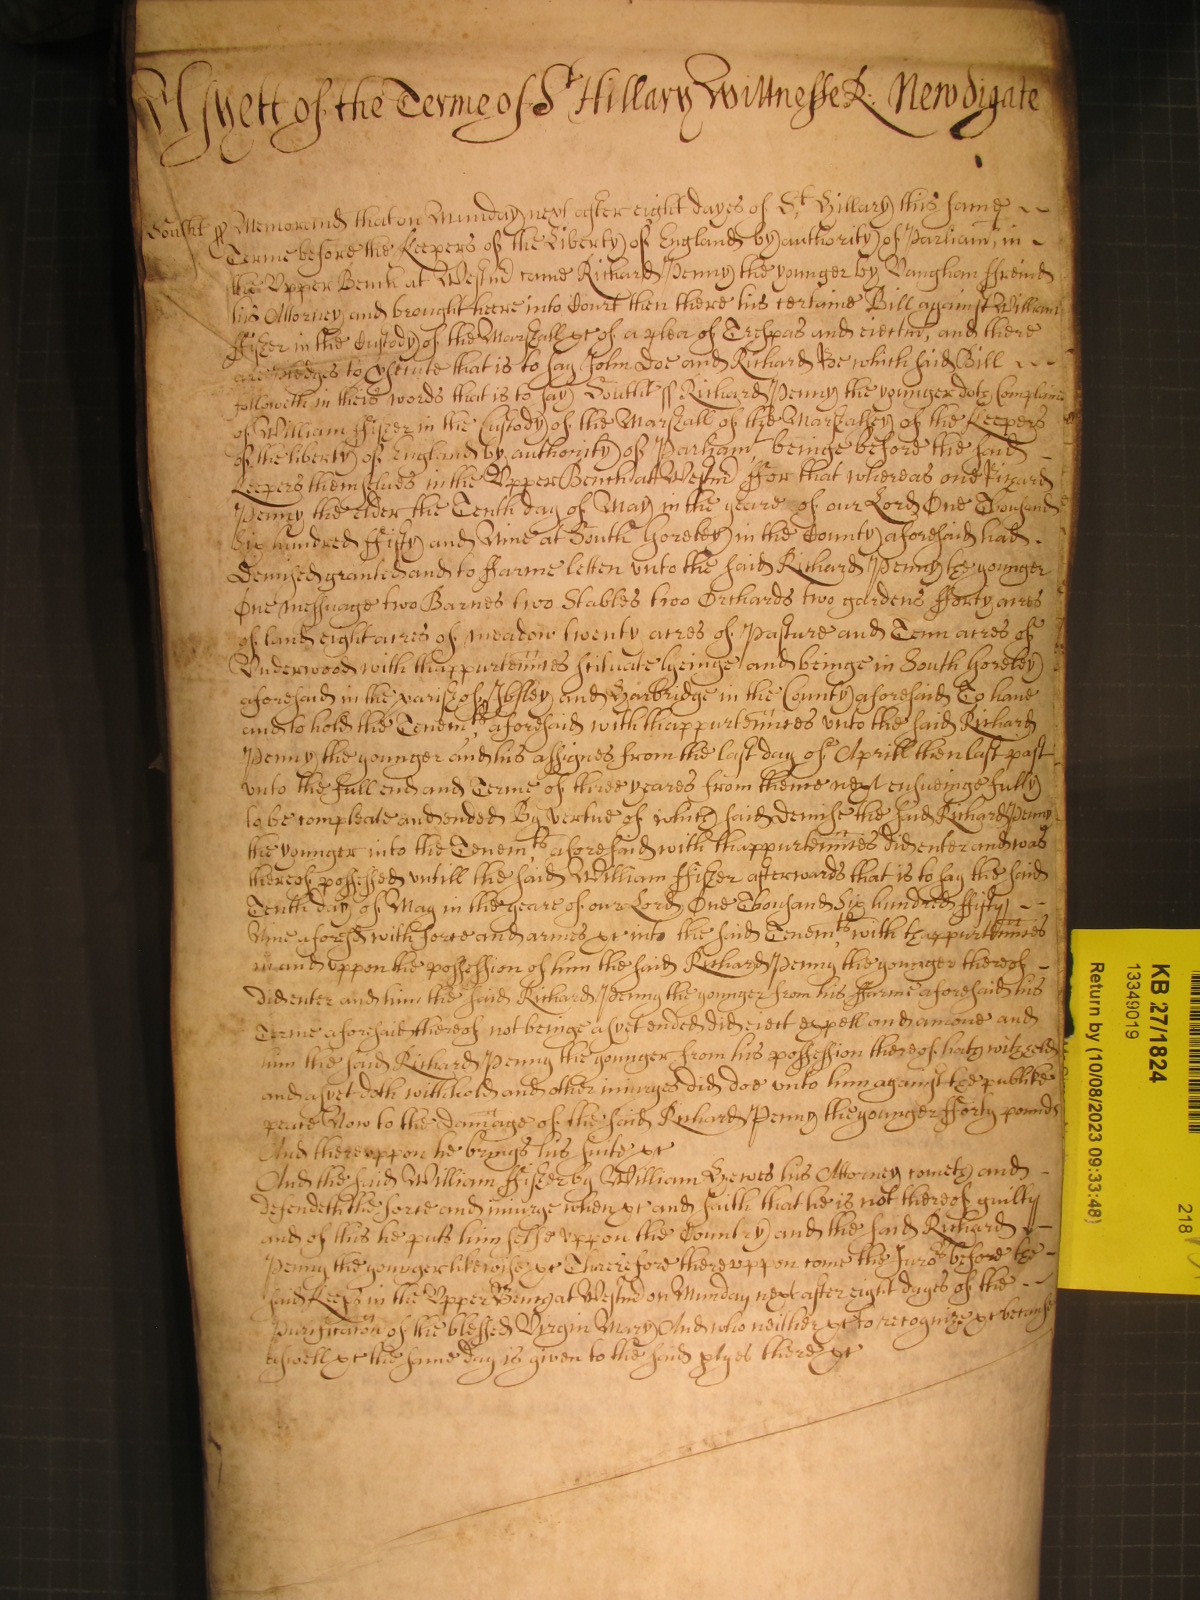 As yett of the Terme of St Hillary Wittnesse R: Newdigate
Southt ss Memorand that on Munday next after eight dayes of St Hillary this same
Terme before the Keepers of the Liberty of England by authority of Parliamt, in
the Upper Bench at Westmr came Richard Penny the younger by Vaughan ffreind
his Attorney and brought heere into Court then there his certaine Bill against William
ffisher in the Custody of the Marshall &c of a plea of Trespas and eiectmt, and there
are pledges to prosecute that is to say John Doe and Richard Roe which said Bill
followeth in theis words that is to say Southt ss Richard Penny the younger doth Complaine
of William ffisher in the Custody of the Marshall of the Marshalsey of the Keepers
of the liberty of England by authority of Parliamt, beinge before the said
Keepers themselves in the Upper Bench att Westmr ffor that whereas one Richard
Penny the elder the Tenth day of May in the yeare of our Lord One Thousand
Six hundred ffifty and Nine at South Goreley in the County aforesaid had
Demised granted and to ffarme letten unto the said Richard Penny the younger
One Messuage two Barnes two Stables two Orchards two gardens fforty acres
of land eight acres of meadow twenty acres of Pasture and Tenn acres of
Underwood with thappurtennces scituate lyeinge and beinge in South Goreley
aforesaid in the parish of Ibsley and Harbridge in the County aforesaid To have
and to hold the Tenemts aforesaid with thappurtennces unto the said Richard
Penny the younger and his assignes from the last day of Aprill then last past
unto the full end and Terme of three yeares from thence next ensueinge fully
to be compleate and ended By vertue of which said demise the said Richard Penny
the younger into the Tenemts aforesaid with thappurtennces did enter and was
thereof possessed untill the said William ffisher afterwards that is to say the said
Tenth day of May in the yeare of our Lord One Thousand Six hundred ffifty
Nine aforesd with force and armes &c into the said Tenemts with thappurtennces
in and uppon the possession of him the said Richard Penny the younger thereof
did enter and him the said Richard Penny the younger from his ffarme aforesaid his
Terme aforesaid thereof not beinge as yet ended did eiect expell and amove and
him the said Richard Penny the younger from his possession thereof hath withheld
and as yet doth withhold and other iniuryes did doe unto him against the publike
peace Now to the damage of the said Richard Penny the younger fforty pounds
And thereuppon he brings his suite &c
And the said William ffisher by William Hewes his Attorney cometh and
defendeth the force and iniurye when &c and saith that he is not thereof guilty
and of this he puts himselfe uppon the Country and the said Richard
Penny the younger likewise &c Therefore thereuppon come the Jurors before the
said Keeprs in the Upper Bench at Westmr on Munday next after eight dayes of the
Purificacon of the blessed Virgin Mary And who neither &c to recognize &c because
aswell &c the same day is given to the said ptyes there &c
KB 27/1824
13349019
Return by (10/08/2023 09:33:48)
218